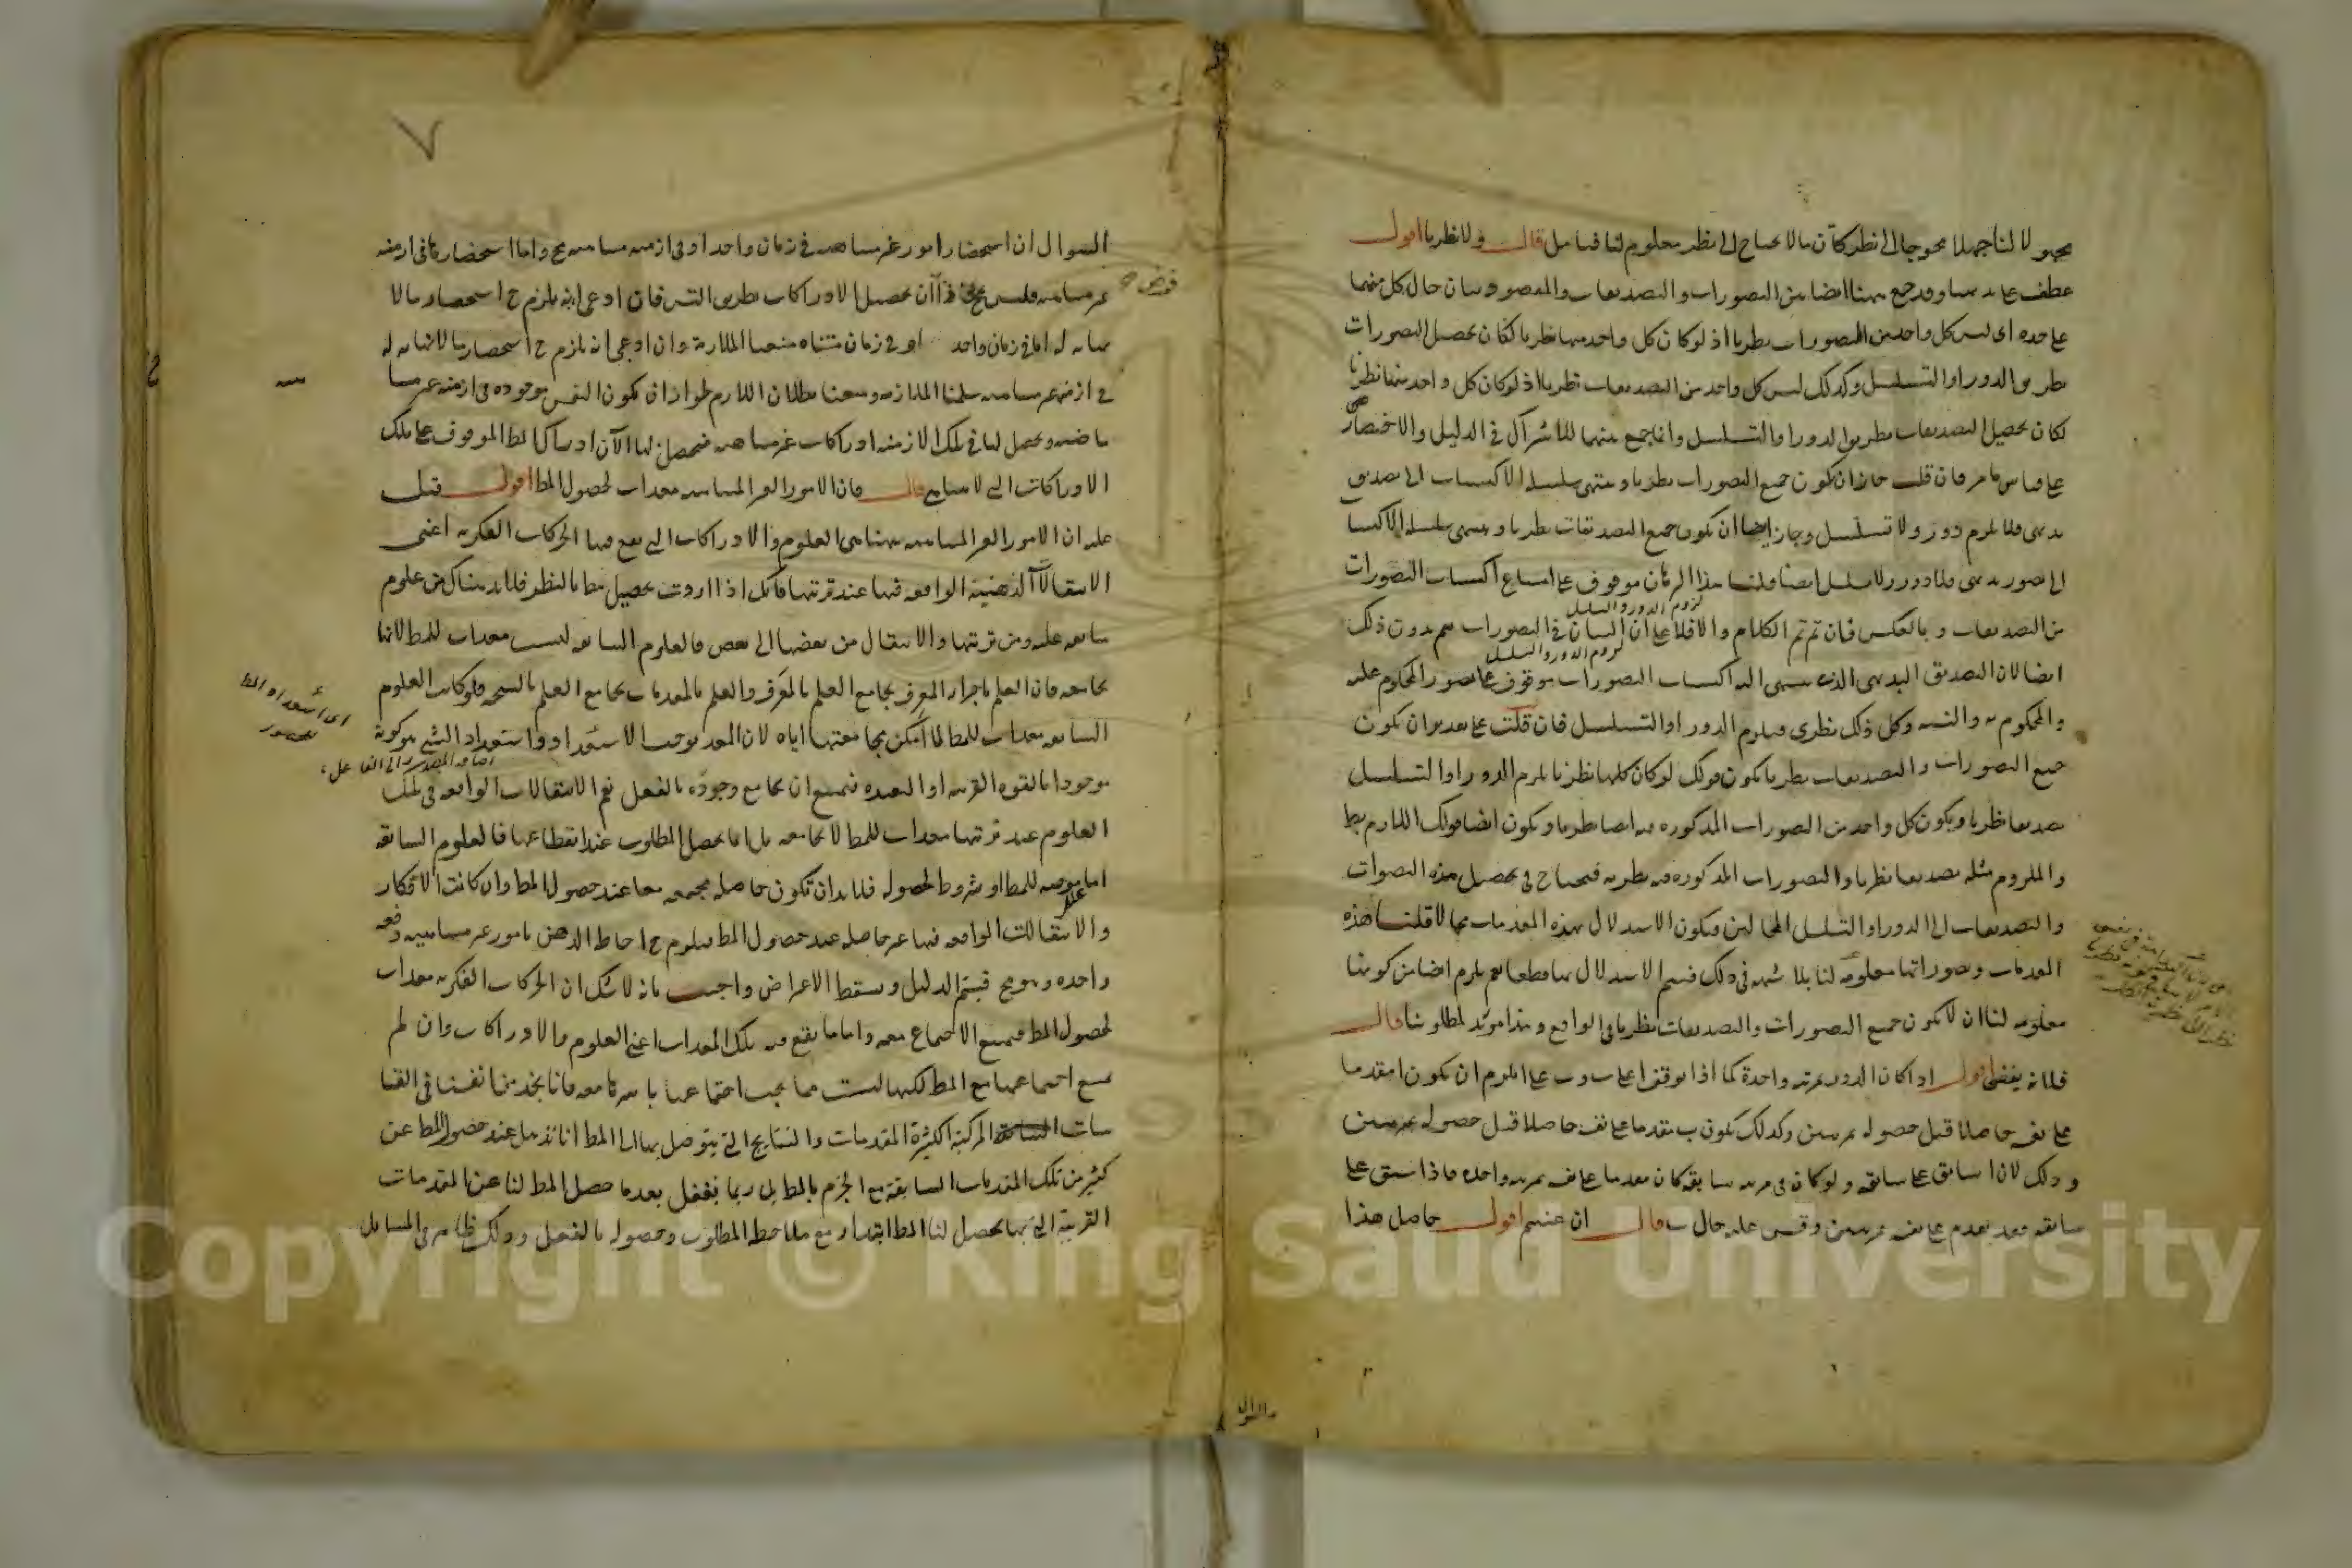 مجهولا لنا جهلا محوجا الى نظر كان ما لا يحتاج الى نظر معلوم لنا فتامل قال ولا نظريا اقول
عطف على بديهيا وقد جمع ههنا ايضا بين التصورات والتصديقات والمقصود بيان حال كل منهما
على حده اى ليس كل واحد من التصورات نظريا اذ لو كان كل واحد منها نظريا لكان تحصيل التصورات
بطريق الدور او التسلسل وكذلك ليس كل واحد من التصديقات نظريا اذ لو كان كل واحد منها نظريا
لكان تحصيل التصديقات بطريق الدور او التسلسل وانما جمع بينهما للاشتراك فى الدليل والاختصار
على قياس ما مر فان قلت جاز ان يكون جميع التصورات نظريا وينتهى سلسلة الاكتساب الى تصديق
بديهى فلا يلزم دور ولا تسلسل وجاز ايضا ان يكون جميع التصديقات نظريا وينتهى سلسلة الاكتسا
الى تصور بديهى فلا دور ولا تسلسل ايضا قلنا هذا البرهان موقوف على امتناع اكتساب التصورات
لزوم الدور والتسلسل
من التصديقات وبالعكس فان تم تم الكلام والا فلا على ان البيان فى التصورات يتم بدون ذلك
لزوم الدور والتسلسل
ايضا لان التصديق البديهى الذى ينتهى اليه اكتساب التصورات موقوف على تصور المحكوم عليه
والمحكوم به والنسبه وكل ذلك نظرى فيلزم الدور او التسلسل فان قلت على تقدير ان يكون
جميع التصورات والتصديقات نظريا يكون قولك لو كان كلها نظريا يلزم الدور او التسلسل
تصديقا نظريا ويكون كل واحد من التصورات المذكوره فيه ايضا نظريا ويكون ايضا قولك اللازم بط
والملزوم مثله تصديقا نظريا والتصورات المذكوره فيه نظريه فيحتاج فى تحصيل هذه التصورات
والتصديقات الى الدور او التسلسل المحالين فيكون الاستدلال بهذه المقدمات محالا قلنا هذه
المقدمات وتصوراتها معلومه لنا بلا شبهه فى ذلك فيتم الاستدلال بها قطعا نعم يلزم ايضا من كونها
معلومه لنا ان لا يكون جميع التصورات والتصديقات نظريا فى الواقع وهذا مؤيد لمطلوبنا قال
فلانه يفضى اقول اذا كان الدور بمرتبه واحدة كما اذا توقف ا على ب و ب على ا لزم ان يكون ا مقدما
على نفسه حاصلا قبل حصوله بمرتبتين وكذلك يكون ب متقدما على نفسه حاصلا قبل حصوله بمرتبتين
وذلك لان ا سابق على سابقه ولو كان فى مرتبه سابقه كان مقدما على نفسه بمرتبه واحده فاذا سبق على
سابقه فقد تقدم على نفسه بمرتبتين وقس عليه حال ب قال ان عنيتم اقول حاصل هذا
السوال
٧
السوال ان استحضار امور غير متناهيه فى زمان واحد او فى ازمنه متناهيه مح واما استحضارها فى ازمنه
غير متناهيه فليس بمح فاذا ان تحصيل الادراكات بطريق التس فان ادعى انه يلزم ح استحضار ما لا
نهايه له اما فى زمان واحد او فى زمان متناه منعنا الملازمة وان ادعى انه يلزم ح استحضار ما لا نهايه له
فى ازمنه غير متناهيه سلمنا الملازمه ومنعنا بطلان اللازم لجواز ان يكون النفس موجوده فى ازمنه غير متنا
ماضيه ويحصل لها فى تلك الازمنه ادراكات غير متناهيه فيحصل لها الآن ادراك المط الموقوف على تلك
الادراكات التى لا تتناهى قال فان الامور الغير المتناهيه معدات لحصول المط اقول قيل
عليه ان الامور الغير المتناهيه ههنا هى العلوم والادراكات التى يقع فيها الحركات الفكريه اعنى
الانتقالات الذهنية الواقعه فيها عند ترتيبها فانك اذا اردت تحصيل مط بالنظر فلا بد هناك من علوم
سابقه عليه ومن ترتيبها والانتقال من بعضها الى بعض فالعلوم السابقه ليست معدات للمط لانها
تجامعه فان العلم باجزاء المعرف يجامع العلم بالمعرف والعلم بالمقدمات يجامع العلم بالنتيجه فلو كانت العلوم
السابقه معدات للمط لما امكن مجامعتها اياه لان المعد يوجب الاستعداد واستعداد الشئ هو كونه
موجودا بالقوه القريبه او البعيده فيمتنع ان يجامع وجوده بالفعل نعم الانتقالات الواقعه فى تلك
العلوم عند ترتيبها معدات للمط لا تجامعه بل انما يحصل المطلوب عند انقطاعها فالعلوم السابقه
اما موجبه للمط او شروط لحصوله فلا بد ان تكون حاصله مجتمعه معا عند حصول المط وان كانت الافكار
والانتقالات الواقعه فيها غير حاصله عند حصول المط فيلزم ح احاطة الذهن بامور غير متناهيه دفعه
واحده وهو مح فيتم الدليل ويسقط الاعتراض واجيب بانه لا شك ان الحركات الفكريه معدات
لحصول المط فيمتنع الاجتماع معه واما ما يقع فيه تلك المعدات اعنى العلوم والادراكات وان لم
يمتنع اجتماعها مع المط لكنها ليست مما يجب اجتماعها باسرها معه فانا نجد من انفسنا فى القيا
سات المركبة الكثيرة المقدمات والنتايج التى يتوصل بها الى المط انا نذهل عند حصول المط عن
كثير من تلك المقدمات السابقة مع الجزم بالمط بل ربما يغفل بعدما حصل المط لنا عن المقدمات
القريبة التى بها يحصل لنا المط ابتداء مع ملاحظه المطلوب وحصوله بالفعل وذلك ظاهر فى المسايل
اى استعداد المط
اضافه المصدر الى الفاعل